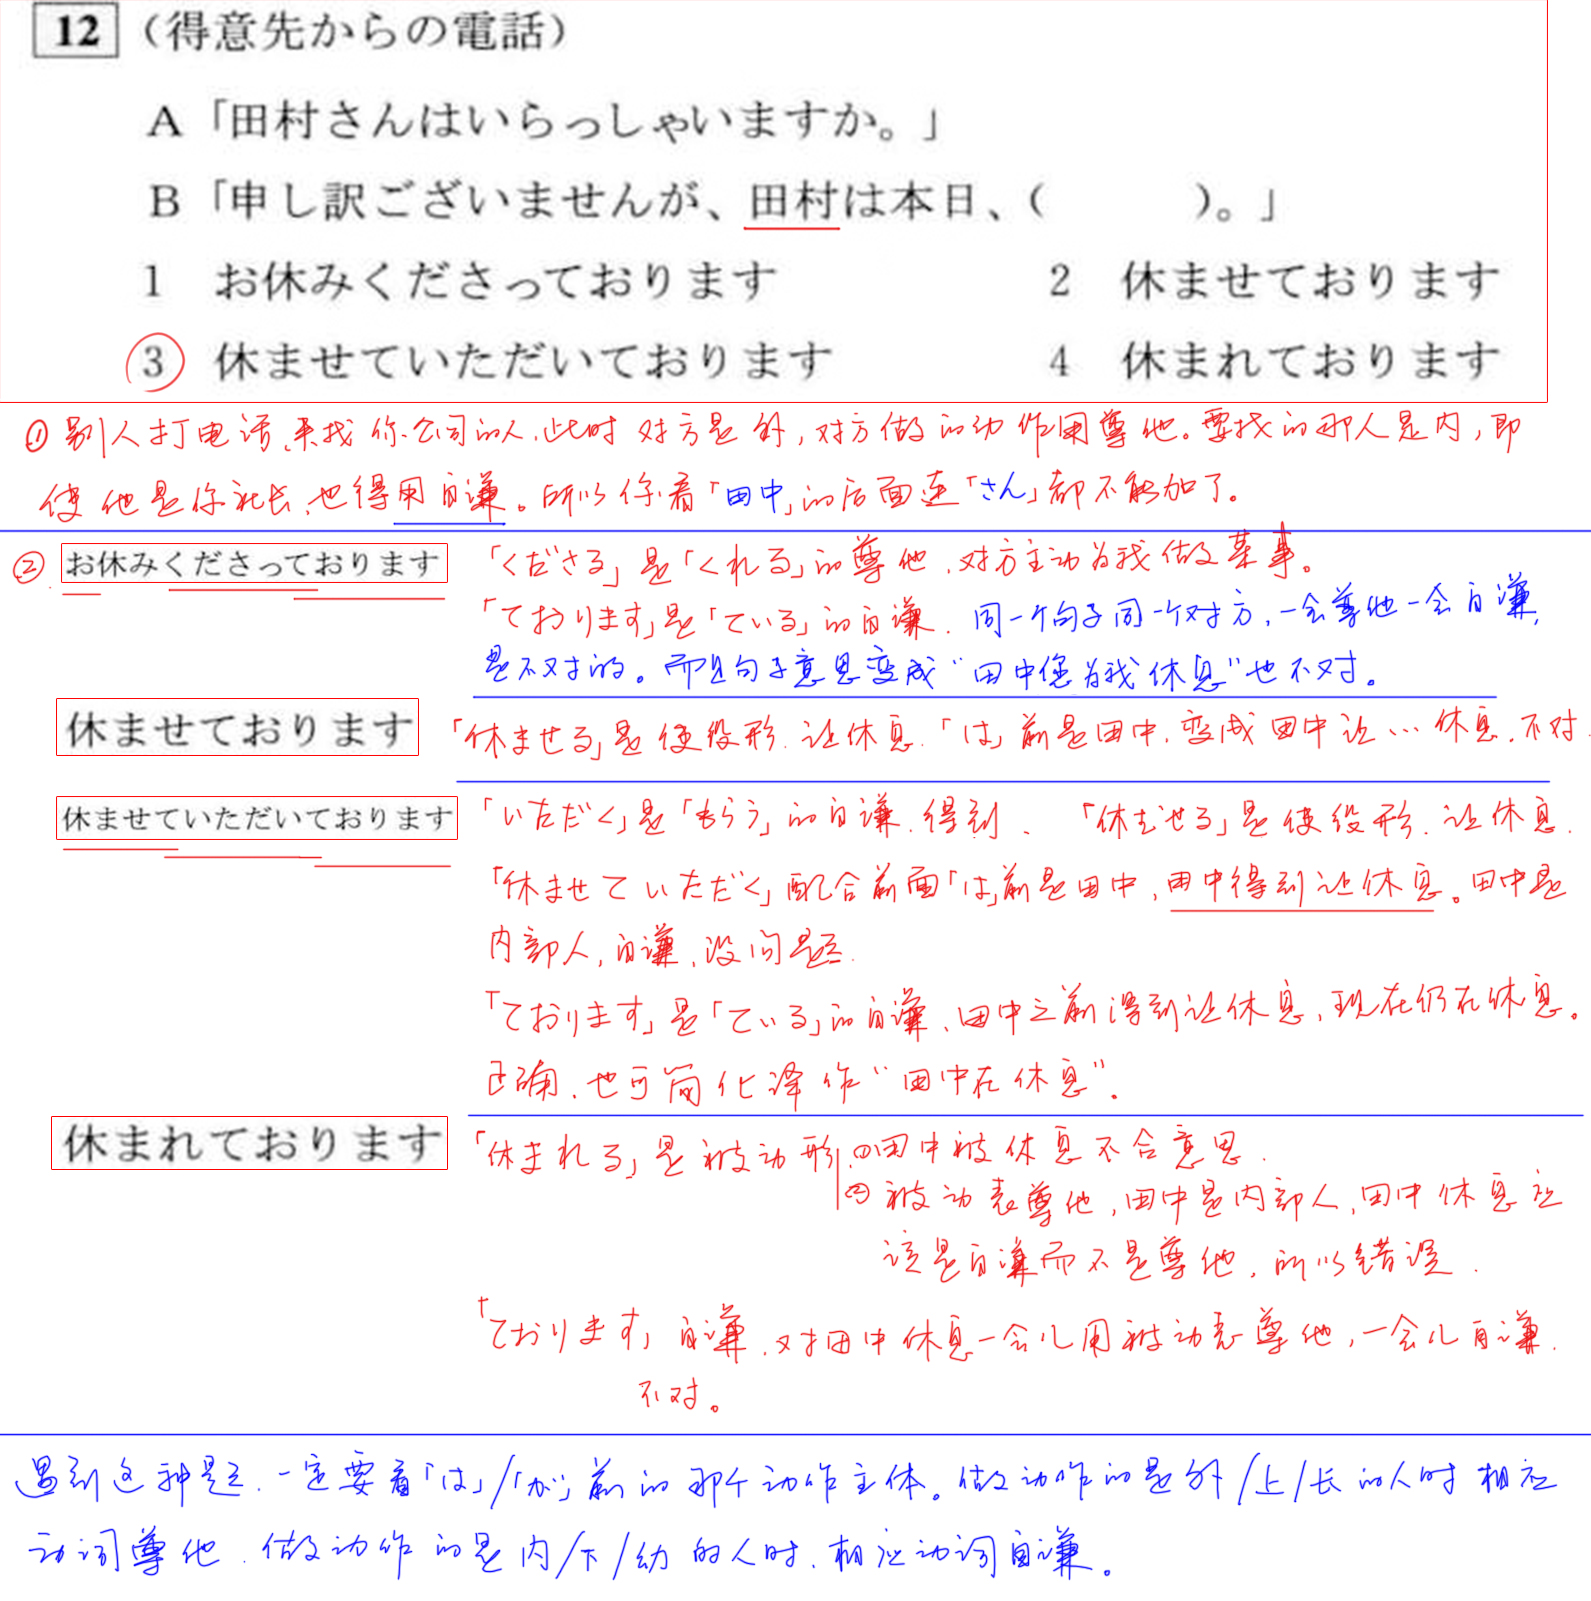 12 （得意先からの電話）
A「田村さんはいらっしゃいますか。」
B「申し訳ございませんが、田村は本日、（　　　）。」
1 お休みくださっております 2 休ませております
3 休ませていただいております 4 休まれております
① 别人打电话来找你公司的人，此时对方是外，对方做的动作用尊他。要找的那人是内，即
使他是你社长，也得用自谦。所以你看「田中」的后面连「さん」都不能加了。
② お休みくださっております 「くださる」是「くれる」的尊他，对方主动为我做某事。
「ております」是「ている」的自谦．同一个句子同一个对方，一会尊他一会自谦，
是不对的。而且句子意思变成“田中您为我休息”也不对。
休ませております 「休ませる」是使役形．让休息．「は」前是田中．变成田中让…休息．不对．
休ませていただいております 「いただく」是「もらう」的自谦．得到． 「休ませる」是使役形．让休息．
「休ませていただく」配合前面「は」前是田中，田中得到让休息。田中是
内部人，自谦，没问题．
「ております」是「ている」的自谦，田中之前得到让休息，现在仍在休息。
正确．也可简化译作“田中在休息”．
休まれております 「休まれる」是被动形 ①田中被休息不合意思．
② 被动表尊他，田中是内部人，田中休息应
该是自谦而不是尊他，所以错误．
「ております」自谦．对田中休息一会儿用被动表尊他，一会儿自谦．
不对。
遇到这种题．一定要看「は」/「が」前的那个动作主体。做动作的是外/上/长的人时相应
动词尊他．做动作的是内/下/幼的人时．相应动词自谦。